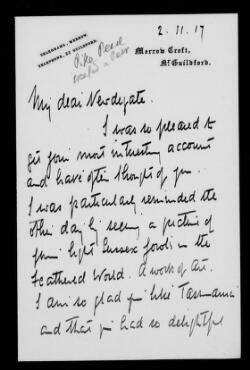 2.11.17
TELEGRAMS, MERROW.
TELEPHONE, 22 GUILDFORD.
Merrow Croft,
Nr Guildford.
My dear Newdegate.
I was so pleased to
get your most interesting account
and have often thought of you.
I was particularly reminded the
other day by seeing a picture of
your light Sussex fowls in the
Feathered World. A work of Art.
I am so glad you like Tasmania
and that you had so delightful